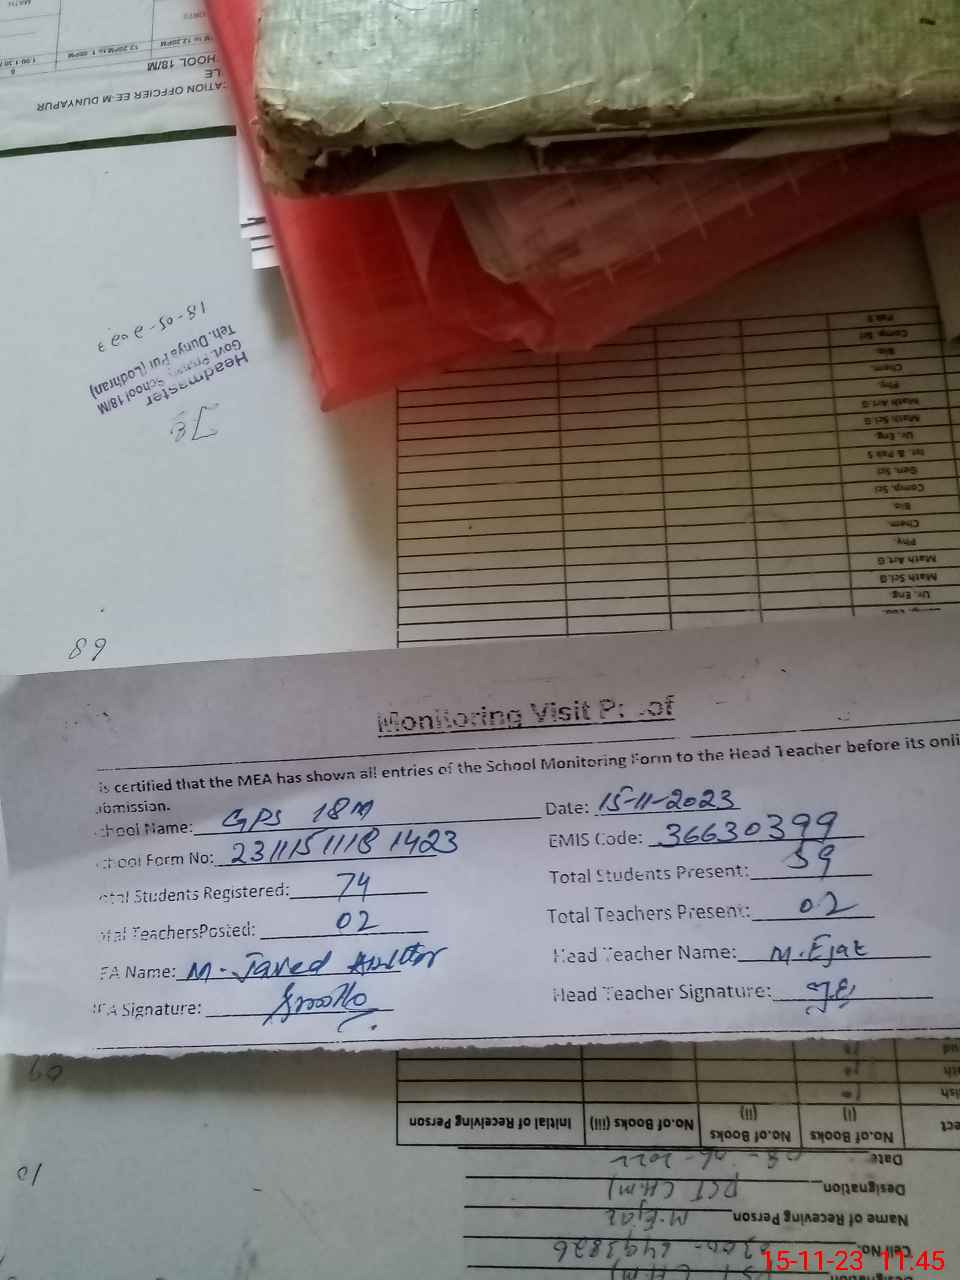 MATH
12.20PM to 1.00PM
CATION OFFCIER EE-M DUNYAPUR
HOOL 18/M
Headmaster
Govt. Primary School 18/M
Teh. Dunya Pur (Lodhran)
18-05-2023
68
Pak S
Comp. Sci
Bio.
Chem.
Phy.
Math Art.G
Math Sci.G
Ur. Eng
Ist. & Pak S
Gen. Sci
Comp. Sci
Bio.
Chem.
Phy.
Math Art.G
Math Sci.G
Ur. Eng.
Monitoring Visit Pr of
is certified that the MEA has shown all entries of the School Monitoring Form to the Head Teacher before its onli
bmission.
chool Name: GPS 18M Date: 15-11-2023
chool Form No: 23111511181423 EMIS Code: 36630399
otal Students Registered: 74 Total Students Present: 59
otal TeachersPosted: 02 Total Teachers Present: 02
EA Name: M. Javed Head Teacher Name: M. Ejaz
EA Signature: Head Teacher Signature:
ect No.of Books (i) No.of Books (ii) No.of Books (iii) Initial of Receiving Person
Date 08-06-2022
Designation PST (H.M)
Name of Receving Person M. Ejaz
Cell No. 0300-6493826
15-11-23 11:45